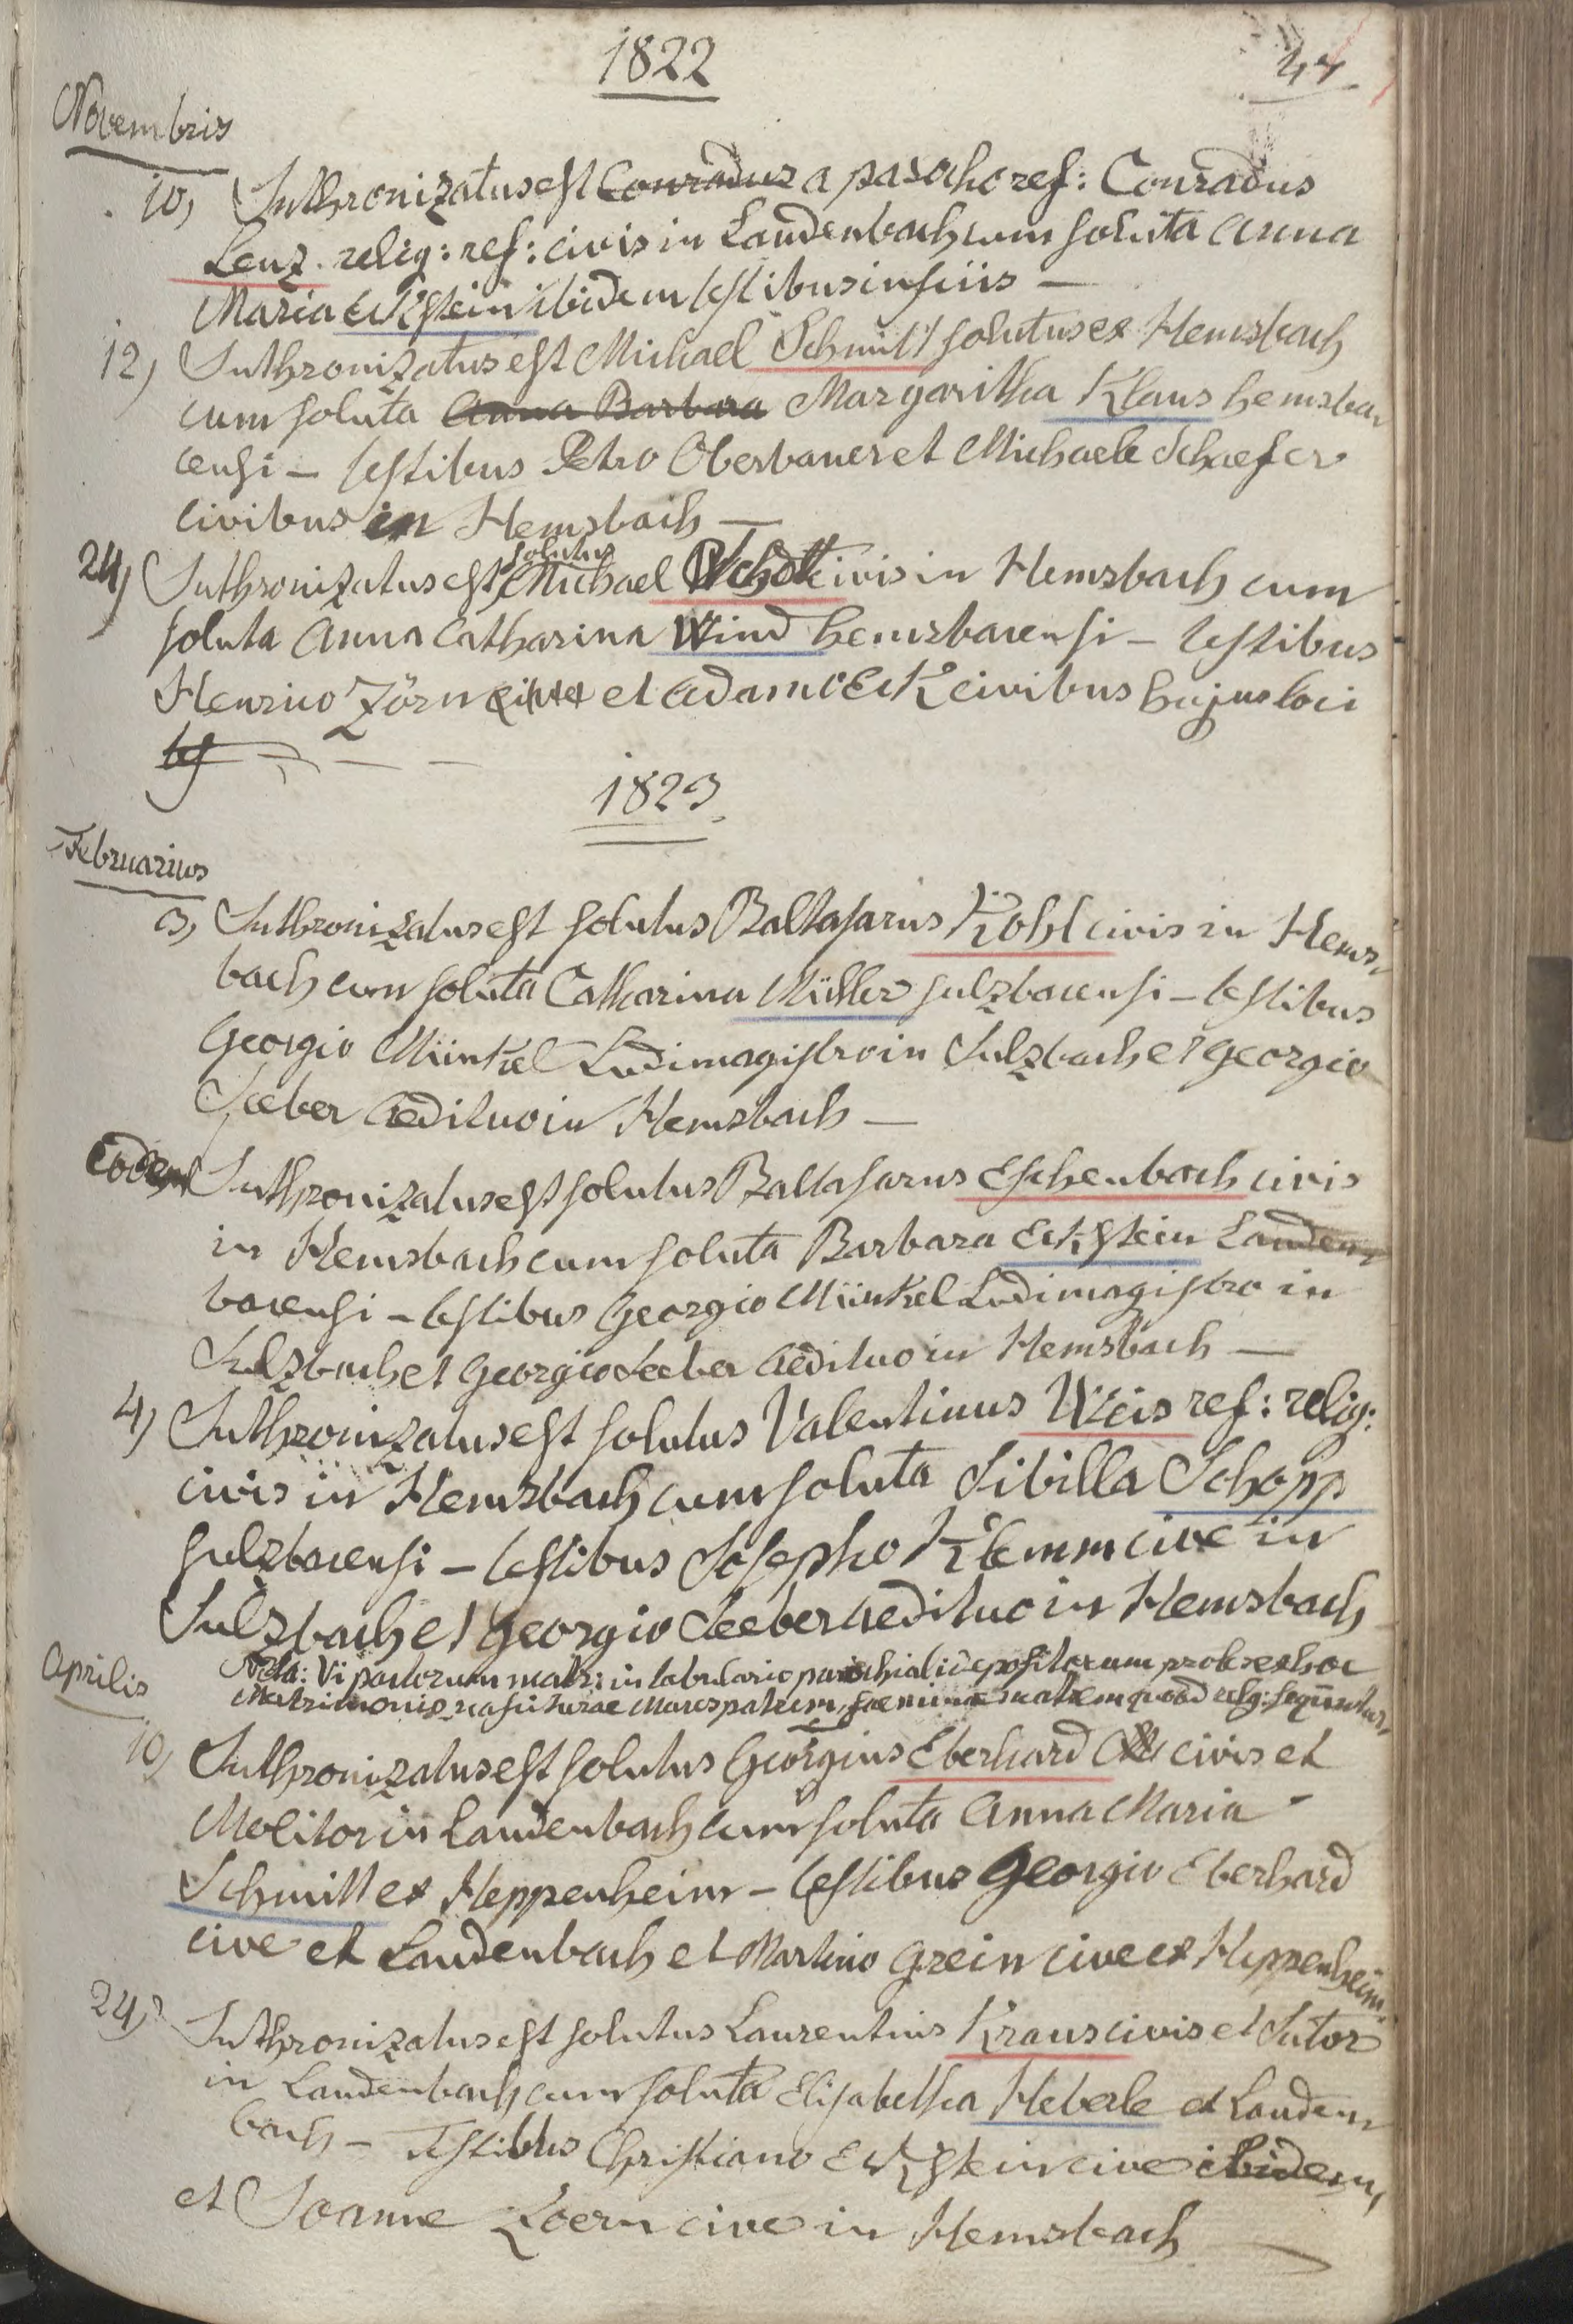 1822
44
Novembris
10, Inthronizatus est Conradus a parocho ref: Conradus
Lenz. relig: ref: civis in Laudenbach cum soluta Anna
Maria Eckstein ibidem testibus insciis —
12) Inthronizatus est Michael Schmitt solutus ex Hemsbach
cum soluta Anna Barbara Margaritha Klaus hemsba„
censi — testibus Petro Oberbauer et Michaele Schaefer
civibus in Hemsbach —
solutus
24) Inthronizatus est Michael civis in Hemsbach cum
soluta Anna Catharina Wind hemsbacensi — testibus
Henrico Zörn et Adamo Eck civibus hujus loci
1823.
Februarius
3, Inthronizatus est solutus Baltasarus Kohl civis in Hems„
bach cum soluta Catharina Müller sulzbacensi — testibus
Georgio Münkel Ludimagistro in Sulzbach et Georgio
Seeber Aedituo in Hemsbach —
Eodem Inthronizatus est solutus Baltasarus Eschenbach civis
in Hemsbach cum soluta Barbara Eckstein Lauden„
bacensi — testibus Georgio Münkel Ludimagistro in
Sulzbach et Georgio Seeber Aedituo in Hemsbach —
4) Inthronizatus est solutus Valentinus Weis ref: relig:
civis in Hemsbach cum soluta Sibilla Schopp
sulzbacensi — testibus Josepho Klemm cive in
Sulzbach et Georgio Seeber Aedituo in Hemsbach
Nota: Vi pactorum matr: in tabulario parochiali depositorum proles ex hoc
Matrimonio nasciturae Mares patrem, foeminae matrem quoad relig: sequuntur,
Aprilis
10, Inthronizatus est solutus Georgius Eberhard civis et
Molitor in Laudenbach cum soluta Anna Maria
Schmitt ex Heppenheim — testibus Georgio Eberhard
cive et Laudenbach et Martino Grein cive ex Heppenheim
24) Inthronizatus est solutus Laurentius Kraus civis et Sutor
in Laudenbach cum soluta Elisabetha Heberle ex Lauden„
bach — Testibus Christiano Eckstein cive ibidem,
et Joanne Zoern cive in Hemsbach